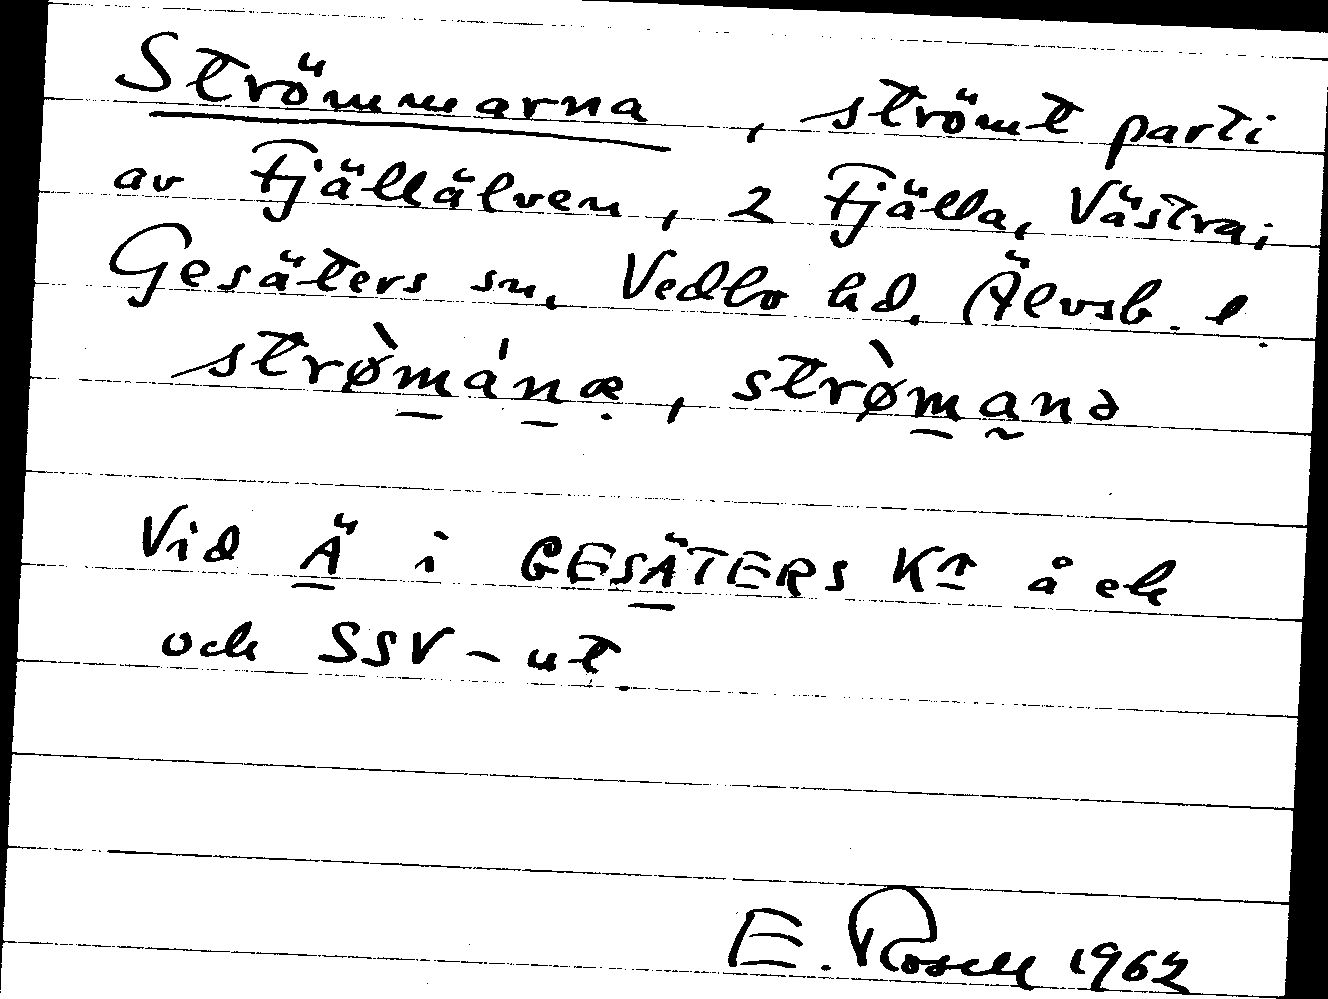 Strömmarna, strömt parti
av Fjällälven, 2 Fjälla, Västra,
Gesäters sn, Vedbo hd. Älvsb. l.
strø̀mánæ, strø̀manə
Vid Ä i GESÄTERS Kᵃ å ek
och SSV-ut.
E. Rosell 1962